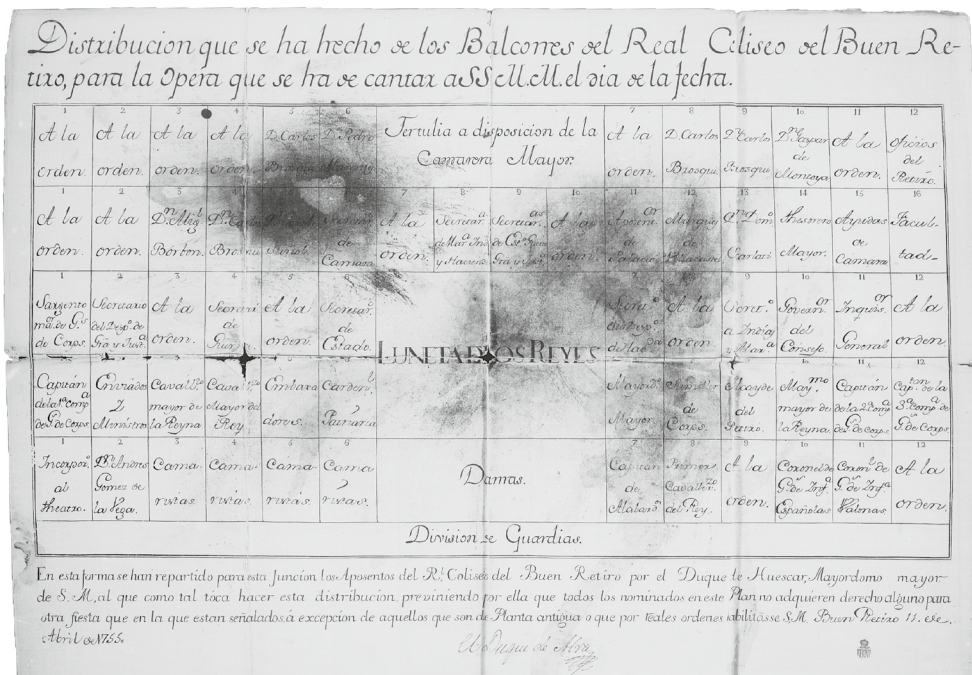 Distribucion que se ha hecho de los Balcones del Real Coliseo del Buen Re-
tiro, para la Opera que se ha de cantar a SS M.M. el dia de la fecha.
1 2 3 4 5 6 7 8 9 10 11 12
A la orden.
A la orden.
A la orden.
A la orden.
D. Carlos
D. Pedro
Tertulia a disposicion de la
Camarera Mayor.
A la orden.
D. Carlos Brosqui.
Dn. Carlos Brosqui
Dn. Gaspar de Montoya
A la orden.
oficios del Retiro.
1 2 3 4 6 7 8 9 10 11 12 13 14 15 16
A la orden.
A la orden.
Borbon.
Dn. Carlos Brosqui
de Camara
A la orden.
Secretar.a de Mar.a Ind.s y Hacien.a
Secretar.as
A la orden.
Thesorero Mayor.
Ayudas de Camara
Facul-
tad-
1 2 3 4 5 6 7 8 9 10 11 12
Sargento
de Corps.
Secretario
A la orden.
Secretari.o de Guerra
A la orden.
Secretar.o de Estado.
A la orden
Secret.o a Indias y Mar.a
Governor del Consejo
Inquis.or General
A la orden
LUNETA D LOS REYES
Capitan de la 1.a Comp.a de G.s de Corps.
Enviados y Ministros
Cavall.zo mayor de la Reyna
Caval.zo Mayor del Rey.
Embaxa
dores.
Carden.l y Patriarca
Mayord.o Mayor.
Sumiller de Corps.
Alcayde del Retiro.
May.mo mayor de la Reyna.
Capitan de la 2.a Comp.a de G.s de Corps.
Cap.tan de la 3.a Comp.a de G.s de Corps
1 2 3 4 5 6 7 8 9 10 11 12
Incorpor.o al theatro.
Dn. Andres Gomez de la Vega.
Cama-
ristas.
Cama-
ristas.
Cama-
ristas.
Cama
ristas.
Damas.
Capitan de Alabard.s
Primer Cavalleri.zo del Rey.
A la orden.
Coronel de G.s de Inf.a Españolas
Coron.l de G.s de Inf.a Valonas
A la orden.
Division de Guardias.
En esta forma se han repartido para esta funcion los Aposentos del R.l Coliseo del Buen Retiro por el Duque de Huescar, Mayordomo mayor
de S. M, al que como tal toca hacer esta distribucion previniendo por ella que todos los nominados en este Plan no adquieren derecho alguno para
otra fiesta que en la que estan señalados, á excepcion de aquellos que son de Planta antigua o que por reales ordenes habilitasse S.M. Buen Retiro 11. de
Abril de 1755.
El Duque de Alva